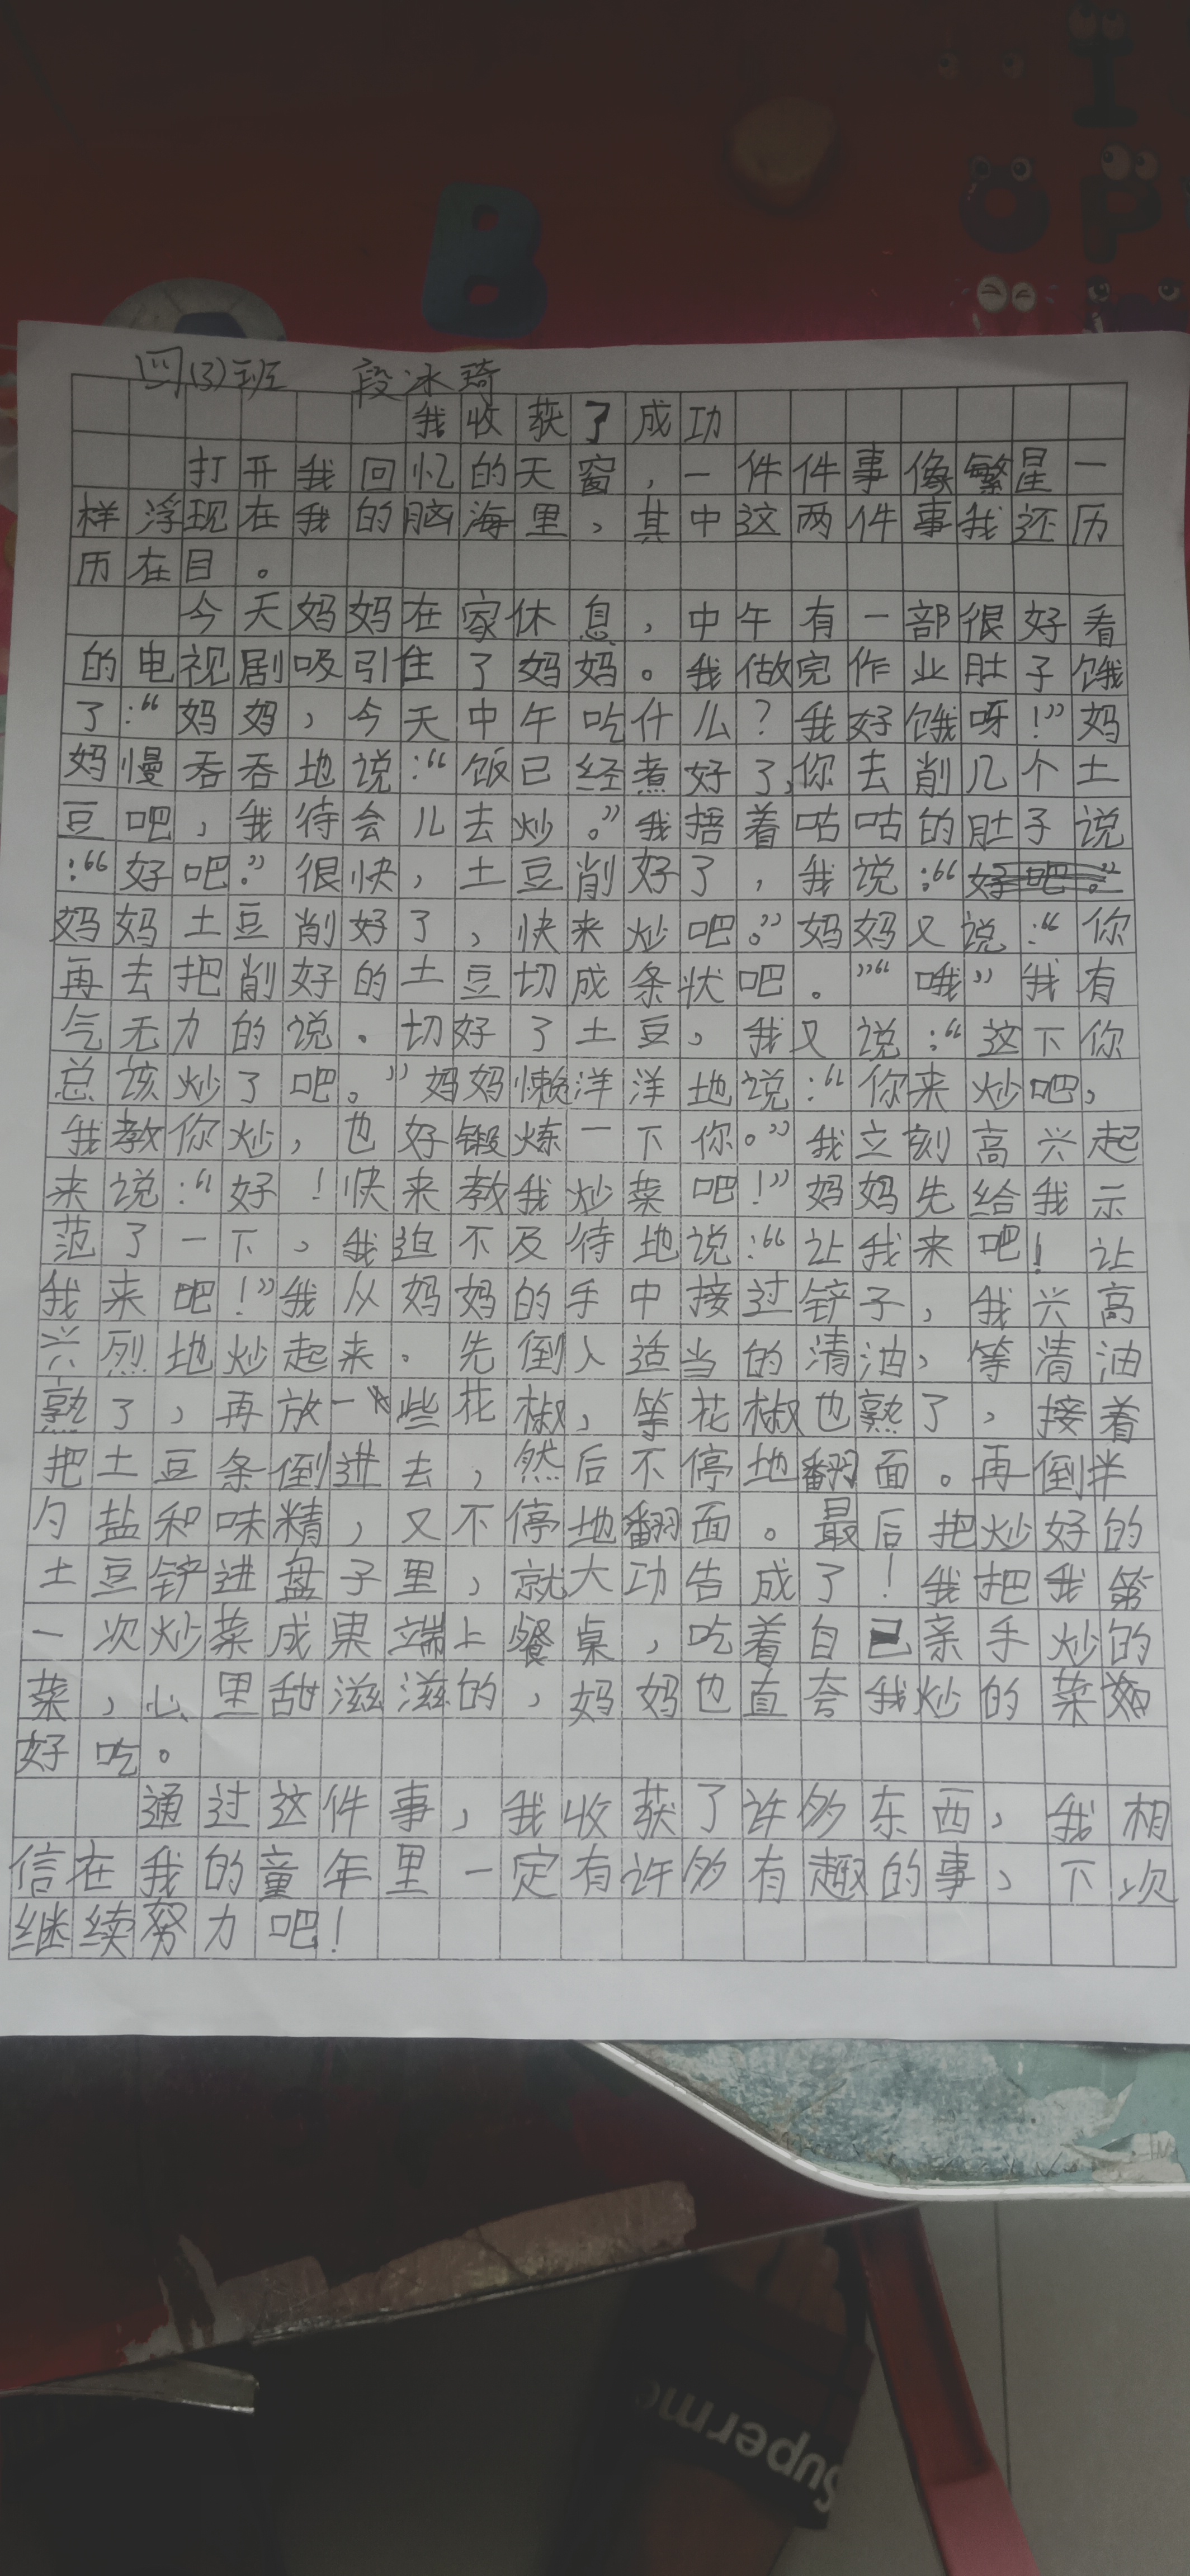 I
B
O P
四(3)班 段冰琦
我收获了成功
打开我回忆的天窗,一件件事像繁星一
样浮现在我的脑海里,其中这两件事我还历
历在目。
今天妈妈在家休息,中午有一部很好看
的电视剧吸引住了妈妈。我做完作业肚子饿
了:“妈妈,今天中午吃什么?我好饿呀!”妈
妈慢吞吞地说:“饭已经煮好了,你去削几个土
豆吧,我待会儿去炒。”我捂着咕咕的肚子说
:“好吧。”很快,土豆削好了,我说:“
妈妈土豆削好了,快来炒吧。”妈妈又说:“你
再去把削好的土豆切成条状吧。”“哦”我有
气无力的说。切好了土豆,我又说:“这下你
总该炒了吧。”妈妈懒洋洋地说:“你来炒吧,
我教你炒,也好锻炼一下你。”我立刻高兴起
来说:“好!快来教我炒菜吧!”妈妈先给我示
范了一下,我迫不及待地说:“让我来吧!让
我来吧!”我从妈妈的手中接过铲子,我兴高
兴烈地炒起来。先倒入适当的清油,等清油
熟了,再放一些花椒,等花椒也熟了,接着
把土豆条倒进去,然后不停地翻面。再倒半
勺盐和味精,又不停地翻面。最后把炒好的
土豆铲进盘子里,就大功告成了!我把我第
一次炒菜成果端上餐桌,吃着自己亲手炒的
菜,心里甜滋滋的,妈妈也直夸我炒的菜
好吃。
通过这件事,我收获了许多东西,我相
信在我的童年里一定有许多有趣的事,下次
继续努力吧!